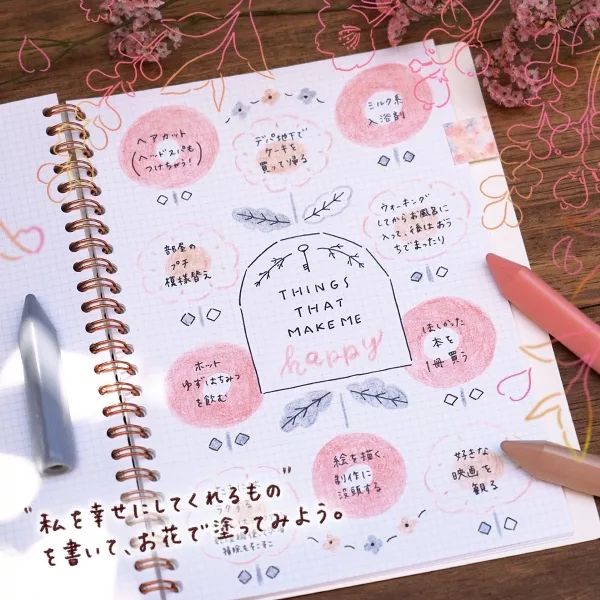 ヘアカット
(ヘッドスパも
つけちゃう!)
デパ地下で
ケーキを
買って帰る
ミルク系
入浴剤
ウォーキング
してからお風呂に
入って、後はおう
ちでまったり
部屋の
プチ
模様替え
THINGS
THAT
MAKE ME
happy
ほしかった
本を
1冊買う
ホット
ゆずはちみつ
を飲む
絵を描く
制作に
没頭する
好きな
映画を
観る
"私を幸せにしてくれるもの"
を書いて、お花で塗ってみよう。